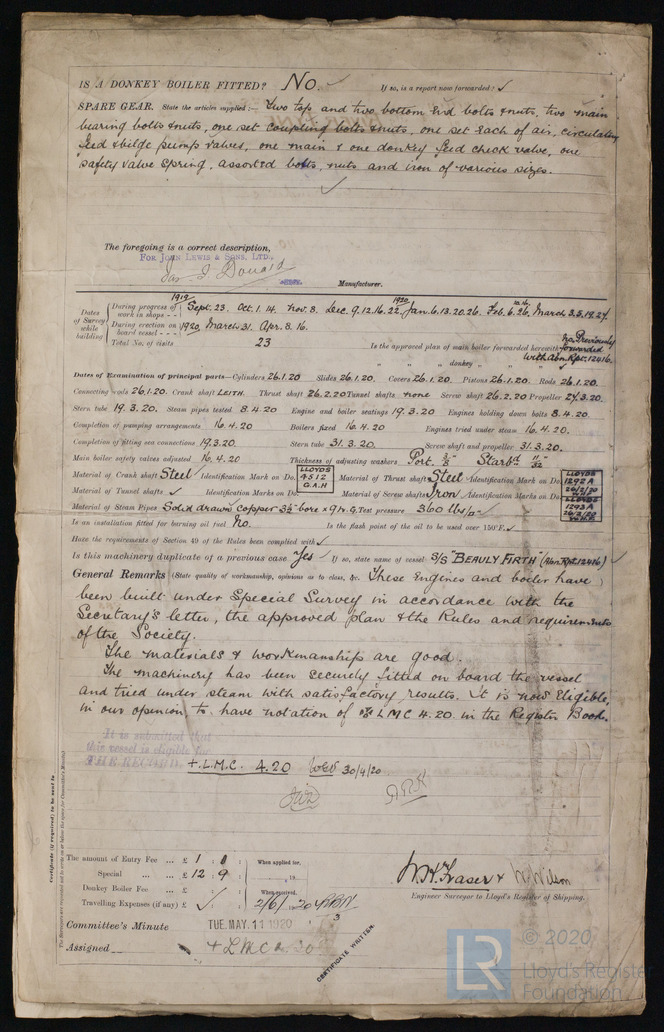 IS A DONKEY BOILER FITTED? No. ✓ If so, is a report now forwarded? ✓
SPARE GEAR. State the articles supplied:— Two top and two bottom end bolts & nuts, two main
bearing bolts & nuts, one set coupling bolts & nuts, one set each of air, circulating
feed & bilge pump valves, one main & one donkey feed check valve, one
safety valve spring, assorted bolts, nuts and iron of various sizes.
✓
The foregoing is a correct description,
FOR JOHN LEWIS & SONS, LTD.
Jas. I. Donald
Manufacturer.
Dates of Survey while building
1919 1920
During progress of work in shops - - Sept. 23. Oct. 1. 14. Nov. 8. Dec. 9. 12. 16. 22. Jan. 6. 13. 20. 26. Feb. 6. 10. 16. 26. March 3. 5. 19. 24.
During erection on board vessel - - - 1920 March 31. Apr. 8. 16.
Total No. of visits 23 Is the approved plan of main boiler forwarded herewith No. Previously forwarded
" " " donkey " " " with Abn. Rpt. 12416.
Dates of Examination of principal parts—Cylinders 26.1.20 Slides 26.1.20. Covers 26.1.20. Pistons 26.1.20. Rods 26.1.20.
Connecting rods 26.1.20. Crank shaft LEITH Thrust shaft 26.2.20 Tunnel shafts none Screw shaft 26.2.20 Propeller 24.3.20.
Stern tube 19.3.20. Steam pipes tested 8.4.20 Engine and boiler seatings 19.3.20 Engines holding down bolts 8.4.20.
Completion of pumping arrangements 16.4.20 Boilers fixed 16.4.20 Engines tried under steam 16.4.20.
Completion of fitting sea connections 19.3.20. Stern tube 31.3.20. Screw shaft and propeller 31.3.20.
Main boiler safety valves adjusted 16.4.20 Thickness of adjusting washers Port. 3/8" Starbd. 11/32"
Material of Crank shaft Steel Identification Mark on Do. LLOYDS 4512 G.A.H Material of Thrust shaft Steel Identification Mark on Do. LLOYDS 1292 A 26/2/20 W.H.F.
Material of Tunnel shafts ✓ Identification Marks on Do. Material of Screw shafts Iron Identification Marks on Do. LLOYDS 1293 A 26/2/20 W.H.F.
Material of Steam Pipes Solid drawn copper 3½" bore x 9 W.G. Test pressure 360 lbs/□" ✓
Is an installation fitted for burning oil fuel No. Is the flash point of the oil to be used over 150°F. ✓
Have the requirements of Section 49 of the Rules been complied with ✓
Is this machinery duplicate of a previous case Yes ✓ If so, state name of vessel S/S "BEAULY FIRTH" (Abn. Rpt. 12416) ✓
General Remarks (State quality of workmanship, opinions as to class, &c. These Engines and boiler have
been built under Special Survey in accordance with the
Secretary's letter, the approved plan & the Rules and requirements
of the Society.
The materials & workmanship are good.
The machinery has been securely fitted on board the vessel
and tried under steam with satisfactory results. It is now eligible,
in our opinion to have notation of + LMC 4.20. in the Register Book.
It is submitted that
this vessel is eligible for
THE RECORD. + L.M.C. 4.20 30/4/20
Certificate (if required) to be sent to
The amount of Entry Fee ... £ 1 : 0 : When applied for,
Special ... £ 12 : 9 : 19
Donkey Boiler Fee ... £ : : When received,
Travelling Expenses (if any) £ ✓ : 2/6/20
W.H. Fraser & W. Wilson
Engineer Surveyor to Lloyd's Register of Shipping.
Committee's Minute TUE. MAY. 11 1920
Assigned + LMC 4.20
CERTIFICATE WRITTEN.
LR © 2020
Lloyd's Register
Foundation